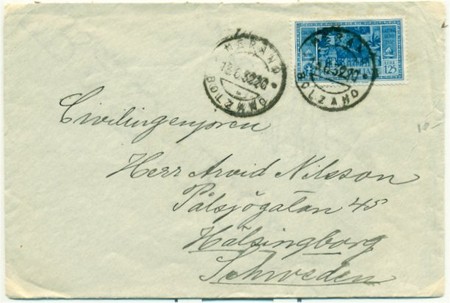 MERANO
13.6.32.20
BOLZANO
MERANO
13.6.32.20
BOLZANO
1.25
10-
Civilingenjoren
Herr Arvid Nilsson
Pålsjögatan 45
Hälsingborg
Schweden